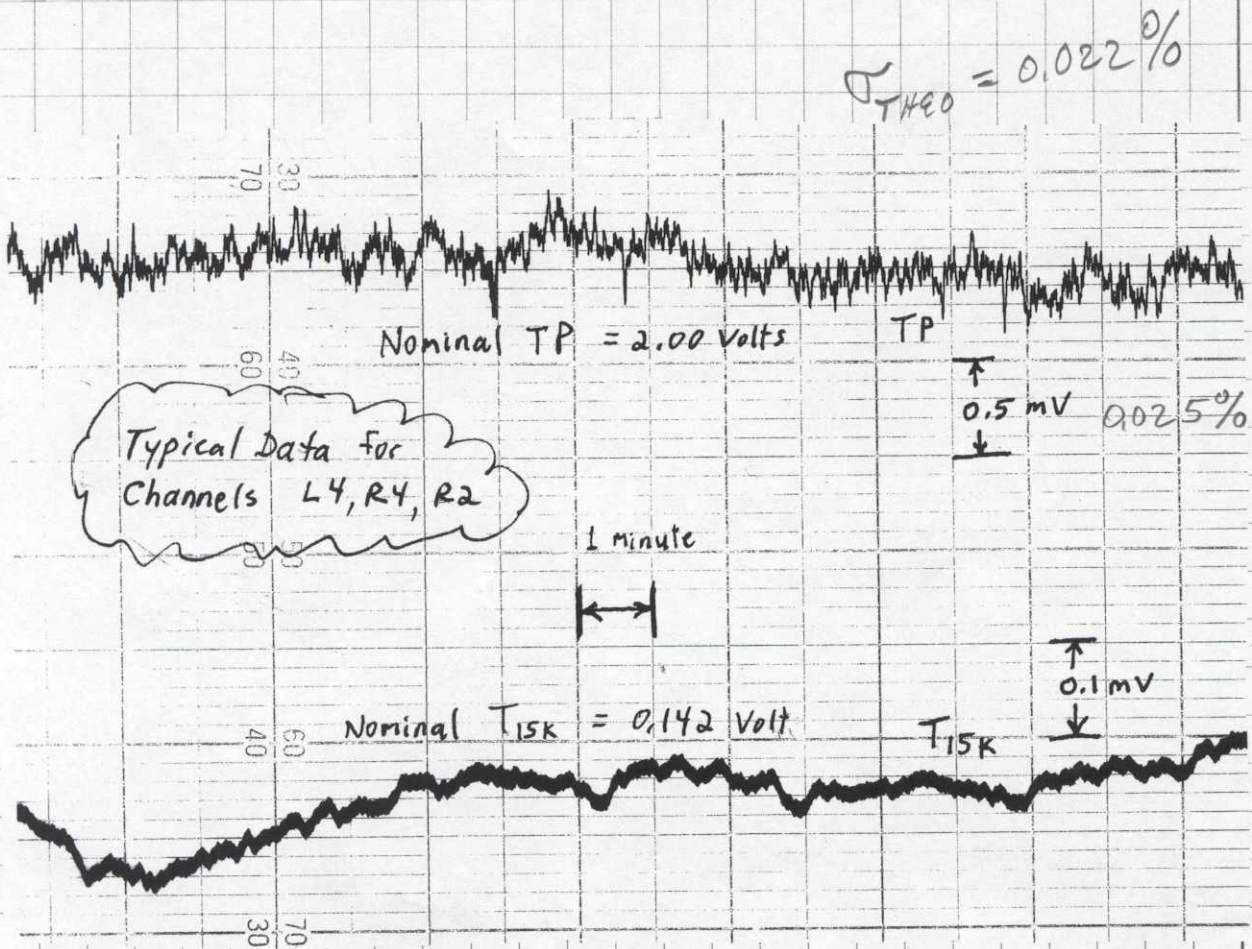 σTHEO = 0.022%
70 30
Nominal TP = 2.00 Volts
TP
60 40
0.5 mV 0.025%
Typical Data for
Channels L4, R4, R2
1 minute
50 50
0.1 mV
Nominal T15K = 0.142 Volt
T15K
40 60
30 70